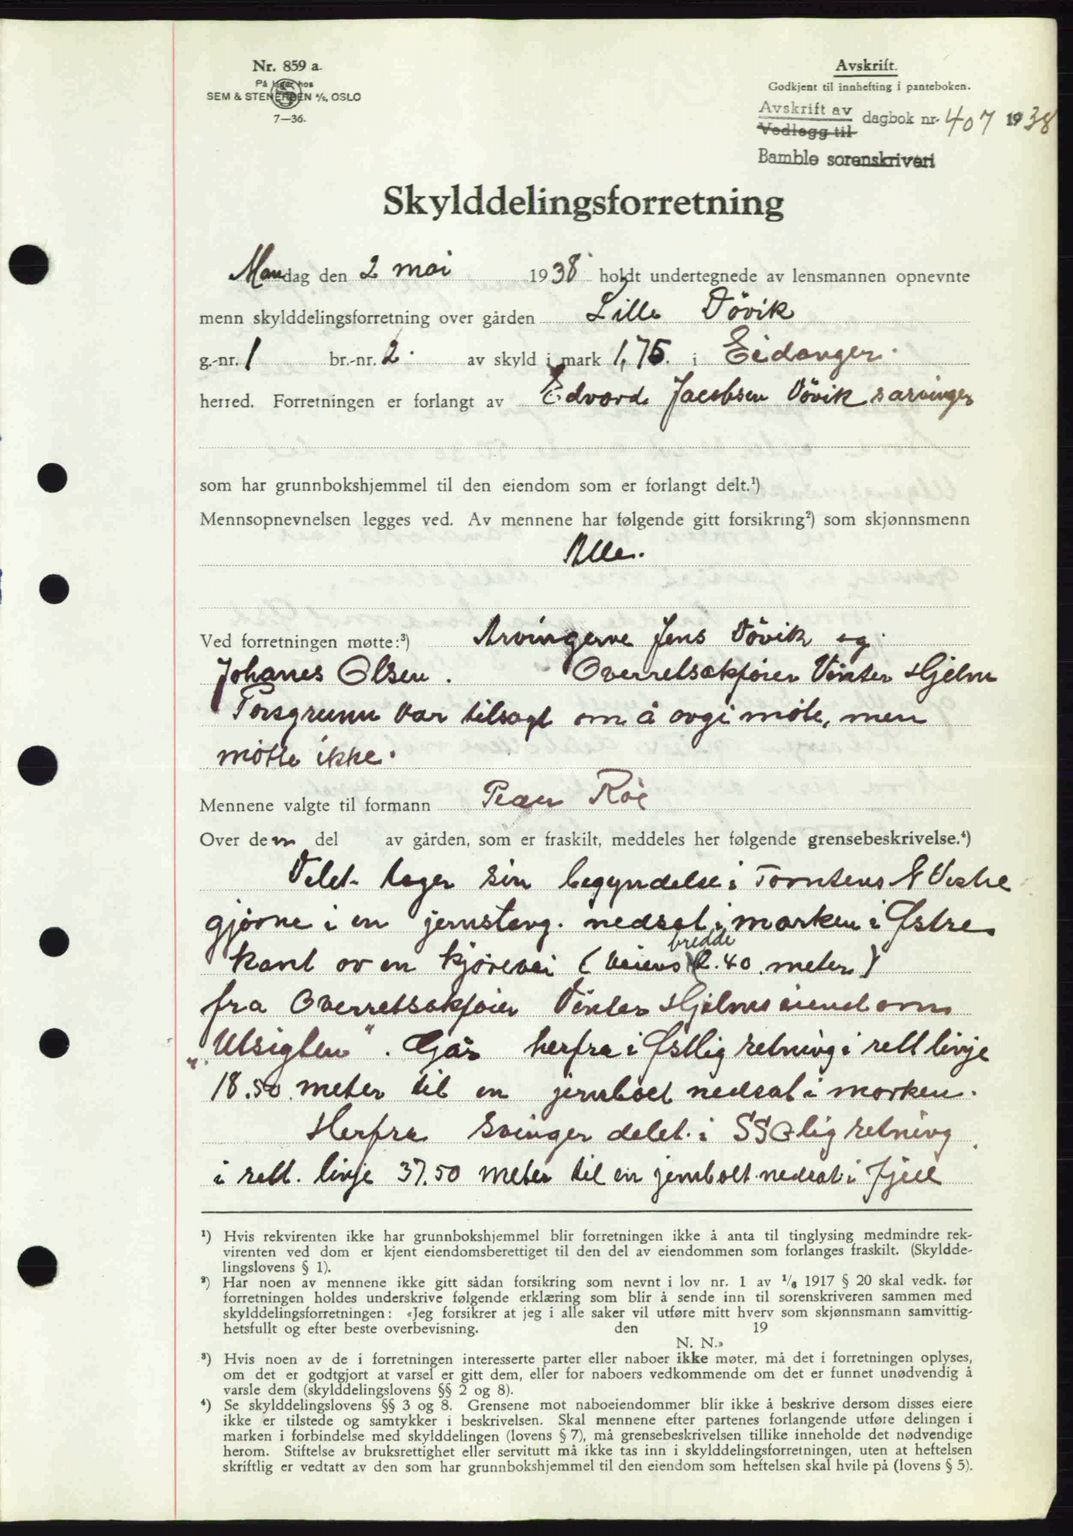 Nr. 859 a.
På lager hos
SEM & STENERSEN A/S, OSLO
7—36.
Avskrift.
Godkjent til innhefting i panteboken.
Avskrift av
Vedlegg til
dagbok nr. 407 1938
Bamble sorenskriveri
Skylddelingsforretning
Mandag den 2 mai 1938 holdt undertegnede av lensmannen opnevnte
menn skylddelingsforretning over gården Lille Døvik
g.-nr. 1 br.-nr. 2. av skyld i mark 1,75. i Eidanger.
herred. Forretningen er forlangt av Edvard Jacobsen Døvik s arvinger
som har grunnbokshjemmel til den eiendom som er forlangt delt.¹)
Mennsopnevnelsen legges ved. Av mennene har følgende gitt forsikring²) som skjønnsmenn
Alle.
Ved forretningen møtte:³) Arvingerne Jens Døvik og
Johanes Olsen. Overretsakfører Vinter Hjelm
Porsgrunn var tilsagt om å avgi møte, men
møtte ikke.
Mennene valgte til formann Peder Röe
Over dem del av gården, som er fraskilt, meddeles her følgende grensebeskrivelse.⁴)
Delet tager sin begyndelse i Tomtens N Vestre
hjørne i en jernstang nedsat i marken i Østre
kant av en kjørevei (veiens bredde 2.40 meter)
fra Overretsakfører Vinter Hjelms eiendom
"Utsigten". Går herfra i Østlig retning i rett linje
18.50 meter til en jernbolt nedsat i marken.
Herfra svinger delet i SSO lig retning
i rett linje 37.50 meter til en jernbolt nedsat i fjell
¹) Hvis rekvirenten ikke har grunnbokshjemmel blir forretningen ikke å anta til tinglysing medmindre rek-
virenten ved dom er kjent eiendomsberettiget til den del av eiendommen som forlanges fraskilt. (Skyldde-
lingslovens § 1).
²) Har noen av mennene ikke gitt sådan forsikring som nevnt i lov nr. 1 av 1/6 1917 § 20 skal vedk. før
forretningen holdes underskrive følgende erklæring som blir å sende inn til sorenskriveren sammen med
skylddelingsforretningen: «Jeg forsikrer at jeg i alle saker vil utføre mitt hverv som skjønnsmann samvittig-
hetsfullt og efter beste overbevisning. den 19
N. N.»
³) Hvis noen av de i forretningen interesserte parter eller naboer ikke møter, må det i forretningen oplyses,
om det er godtgjort at varsel er gitt dem, eller for naboers vedkommende om det er funnet unødvendig å
varsle dem (skylddelingslovens §§ 2 og 8).
⁴) Se skylddelingslovens §§ 3 og 8. Grensene mot naboeiendommer blir ikke å beskrive dersom disses eiere
ikke er tilstede og samtykker i beskrivelsen. Skal mennene efter partenes forlangende utføre delingen i
marken i forbindelse med skylddelingen (lovens § 7), må grensebeskrivelsen tillike inneholde det nødvendige
herom. Stiftelse av bruksrettighet eller servitutt må ikke tas inn i skylddelingsforretningen, uten at heftelsen
skriftlig er vedtatt av den som har grunnbokshjemmel til den eiendom som heftelsen skal hvile på (lovens § 5).